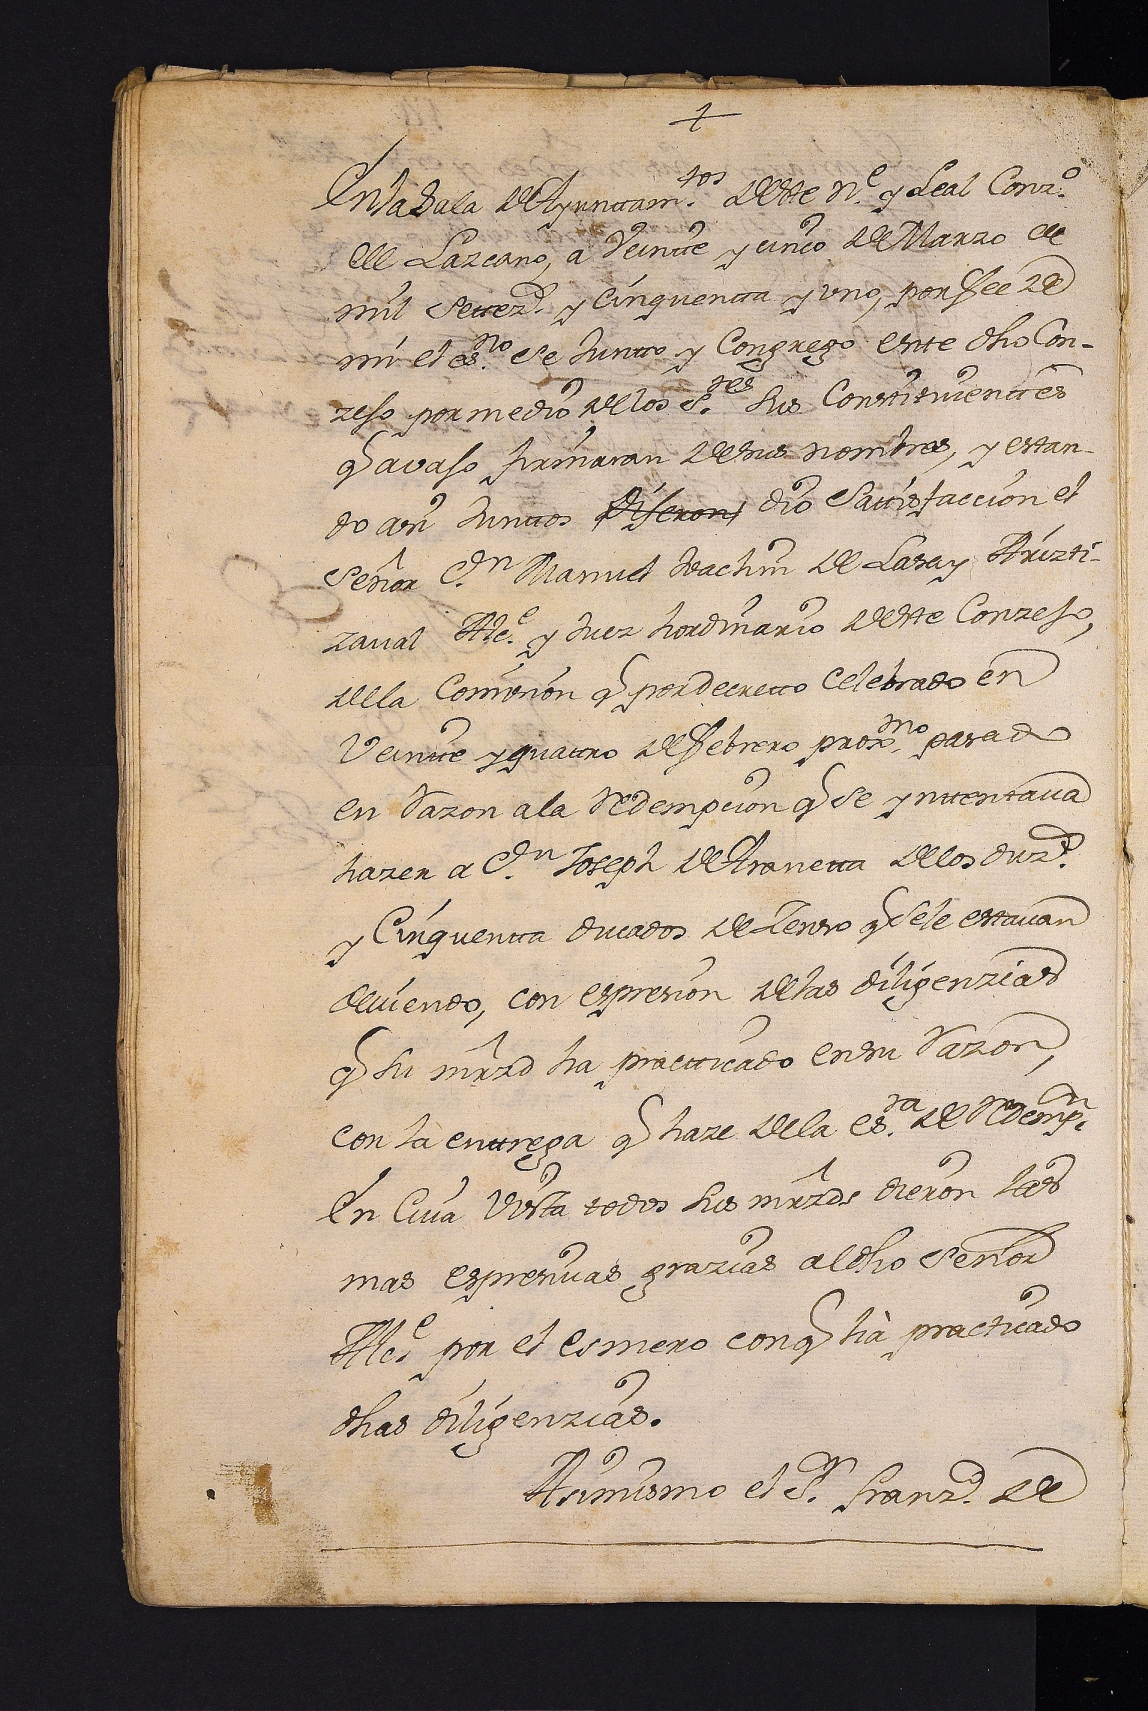 +
En la Sala de Ayunttam.tos de este N.e y Leal Conz.o
de Lazcano, a Veintte y cinco de Marzo de
mil settez.s y Cinquentta y uno, por fee de
mi el es.no se Juntto y Congrego este dho Con-
zejo por medio de los S.res sus Constituienttes
q avajo firmaran de sus nombres, y estan-
do asi Junttos dijeron dio Sattisfaccion el
Señor D.n Manuel Joachin de Lasa y Aruzti-
zaual Alc.e y Juez hordinario de este Conzejo,
de la Comision q por decretto Celebrado en
Veintte y quattro de Febrero prox.mo pasado
en Razon a la Redempcion q se ynttentaua
hazer a D.n Joseph de Aranetta de los duz.s
y Cinquentta ducados de Zenso q se le estauan
deuiendo, con espresion de las diligenzias
q su mrzd ha practticado en su Razon,
con la enttrega q haze de la es.ra de Redemp.on
En Cuia Vista todos sus mrzds dieron las
mas espresiuas grazias al dho Señor
Alc.e por el esmero con q hà practicado
dhas diligenzias.
Asimismo el S.r Franz.o de